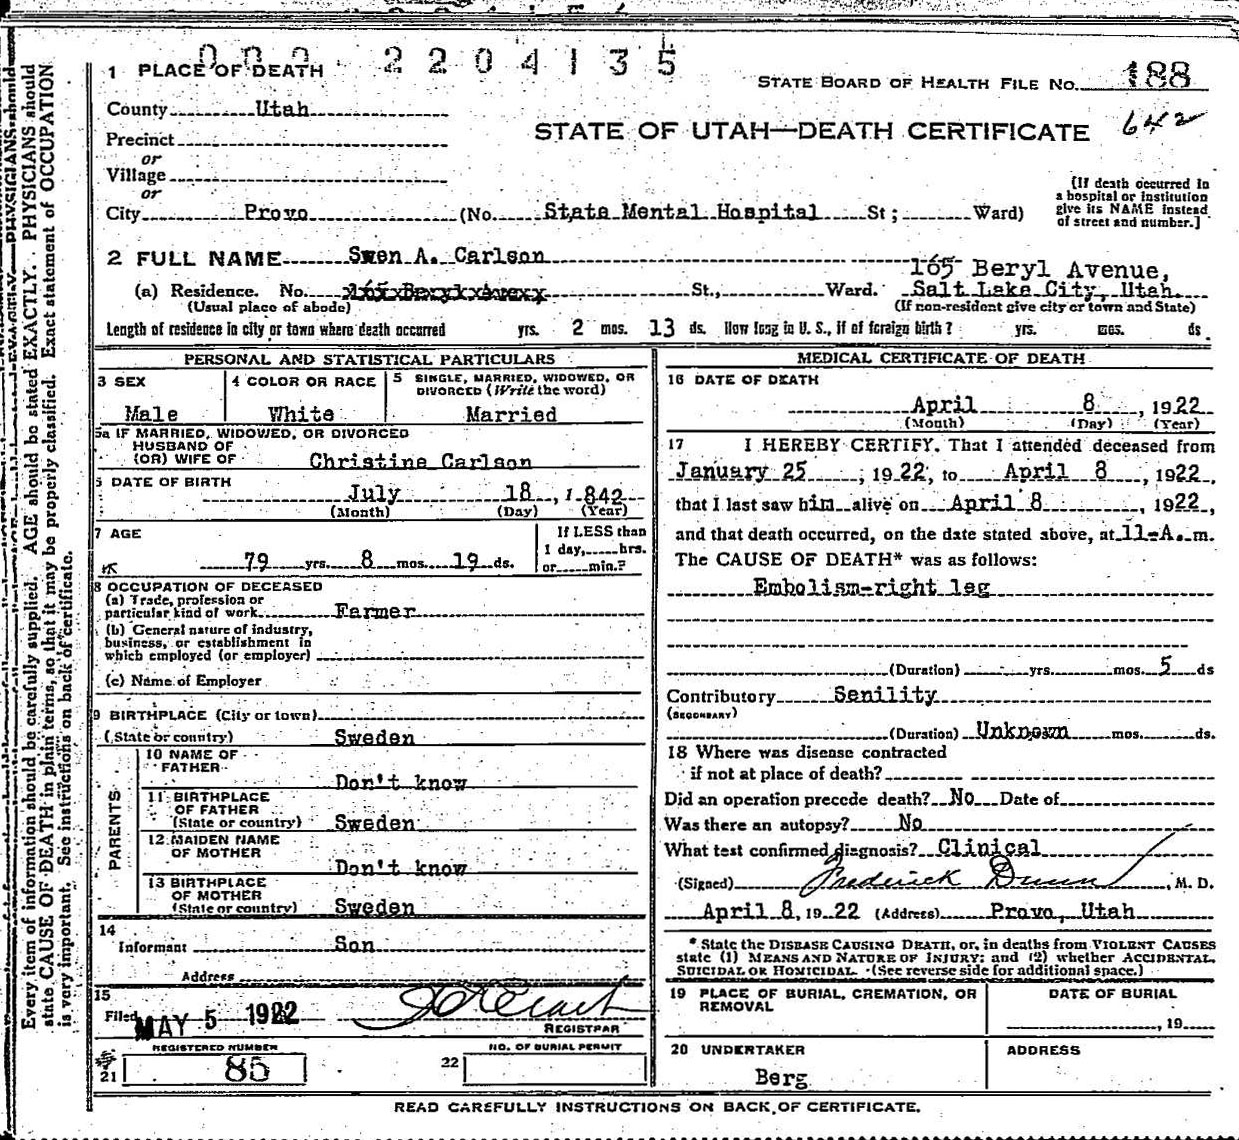 0 0 0 2 2 0 4 1 3 5
1 PLACE OF DEATH
STATE BOARD OF HEALTH FILE NO. 188
County Utah
642
STATE OF UTAH—DEATH CERTIFICATE
Precinct
or
Village
or
City Provo (No. State Mental Hospital St; Ward)
[If death occurred in a hospital or institution give its NAME instead of street and number.]
2 FULL NAME Swen A. Carlson
165 Beryl Avenue,
(a) Residence. No. 165 Beryl Ave. St., Ward. Salt Lake City, Utah.
(Usual place of abode) (If non-resident give city or town and State)
Length of residence in city or town where death occurred yrs. 2 mos. 13 ds. How long in U. S., if of foreign birth? yrs. mos. ds.
PERSONAL AND STATISTICAL PARTICULARS
3 SEX
Male
4 COLOR OR RACE
White
5 SINGLE, MARRIED, WIDOWED, OR
DIVORCED (Write the word)
Married
5a IF MARRIED, WIDOWED, OR DIVORCED
HUSBAND OF
(OR) WIFE OF Christine Carlson
6 DATE OF BIRTH
July 18, 1842
(Month) (Day) (Year)
7 AGE
79 yrs. 8 mos. 19 ds.
If LESS than
1 day, hrs.
or min.?
8 OCCUPATION OF DECEASED
(a) Trade, profession or
particular kind of work Farmer
(b) General nature of industry,
business, or establishment in
which employed (or employer)
(c) Name of Employer
9 BIRTHPLACE (City or town)
(State or country) Sweden
PARENTS
10 NAME OF
FATHER
Don't know
11 BIRTHPLACE
OF FATHER
(State or country) Sweden
12 MAIDEN NAME
OF MOTHER
Don't know
13 BIRTHPLACE
OF MOTHER
(State or country) Sweden
14
Informant Son
Address
15
Filed MAY 5 1922
REGISTRAR
REGISTERED NUMBER
21 85
NO. OF BURIAL PERMIT
22
MEDICAL CERTIFICATE OF DEATH
16 DATE OF DEATH
April 8, 1922
(Month) (Day) (Year)
17 I HEREBY CERTIFY, That I attended deceased from
January 25, 1922, to April 8, 1922,
that I last saw him alive on April 8, 1922,
and that death occurred, on the date stated above, at 11-A. m.
The CAUSE OF DEATH* was as follows:
Embolism-right leg
(Duration) yrs. mos. 5 ds
Contributory Senility
(SECONDARY)
(Duration) Unknown mos. ds.
18 Where was disease contracted
if not at place of death?
Did an operation precede death? No Date of
Was there an autopsy? No
What test confirmed diagnosis? Clinical
(Signed) Frederick Dunn, M. D.
April 8, 1922 (Address) Provo, Utah
* State the DISEASE CAUSING DEATH, or, in deaths from VIOLENT CAUSES
state (1) MEANS AND NATURE OF INJURY; and (2) whether ACCIDENTAL,
SUICIDAL OR HOMICIDAL. (See reverse side for additional space.)
19 PLACE OF BURIAL, CREMATION, OR
REMOVAL
DATE OF BURIAL
, 19
20 UNDERTAKER
Berg
ADDRESS
READ CAREFULLY INSTRUCTIONS ON BACK OF CERTIFICATE.
Every item of information should be carefully supplied. AGE should be stated EXACTLY. PHYSICIANS should
state CAUSE OF DEATH in plain terms, so that it may be properly classified. Exact statement of OCCUPATION
is very important. See instructions on back of certificate.